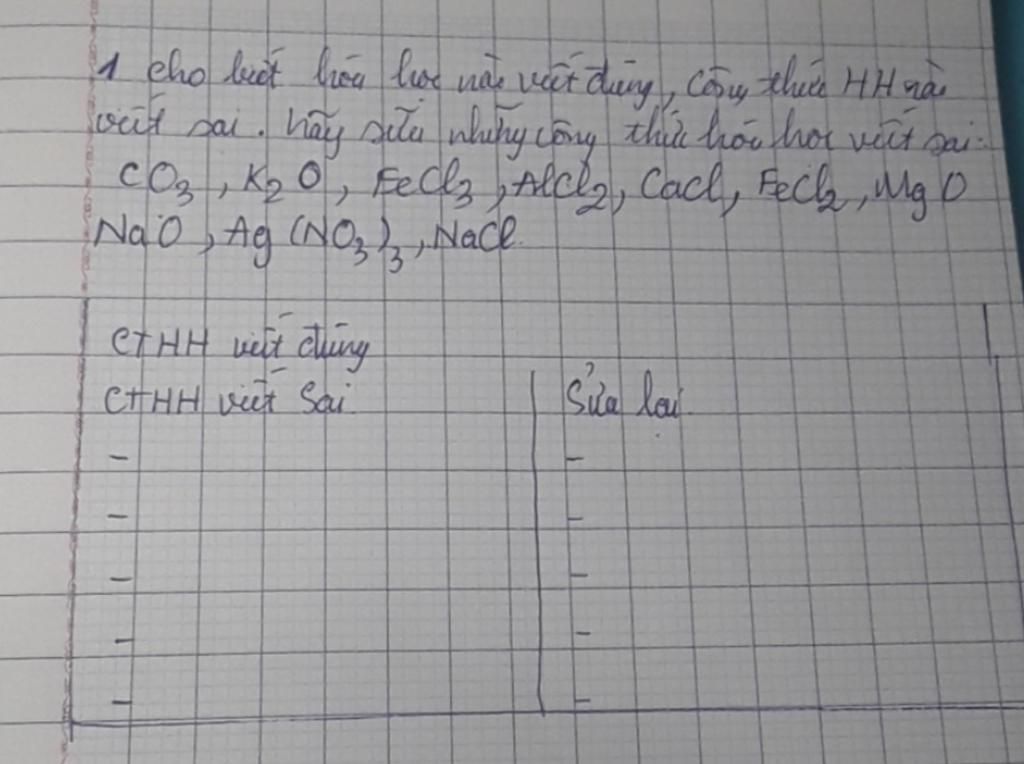 1 cho biết hóa học nào viết đúng, công thức HH nào
viết sai. hãy sửa những công thức hóa học viết sai:
CO3, K2O, FeCl3, AlCl2, CaCl, FeCl2, MgO
NaO, Ag(NO3)3, NaCl.
CTHH viết đúng
CTHH viết Sai Sửa lại
- -
- -
- -
- -
- -